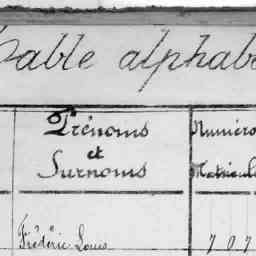 Table alphab
Prénoms Numéro
et
Surnoms Matricul
Frédéric Louis 707